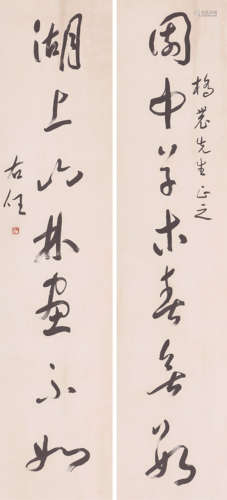 園中草木春無數
先生正之
湖上山林畫不如
右任